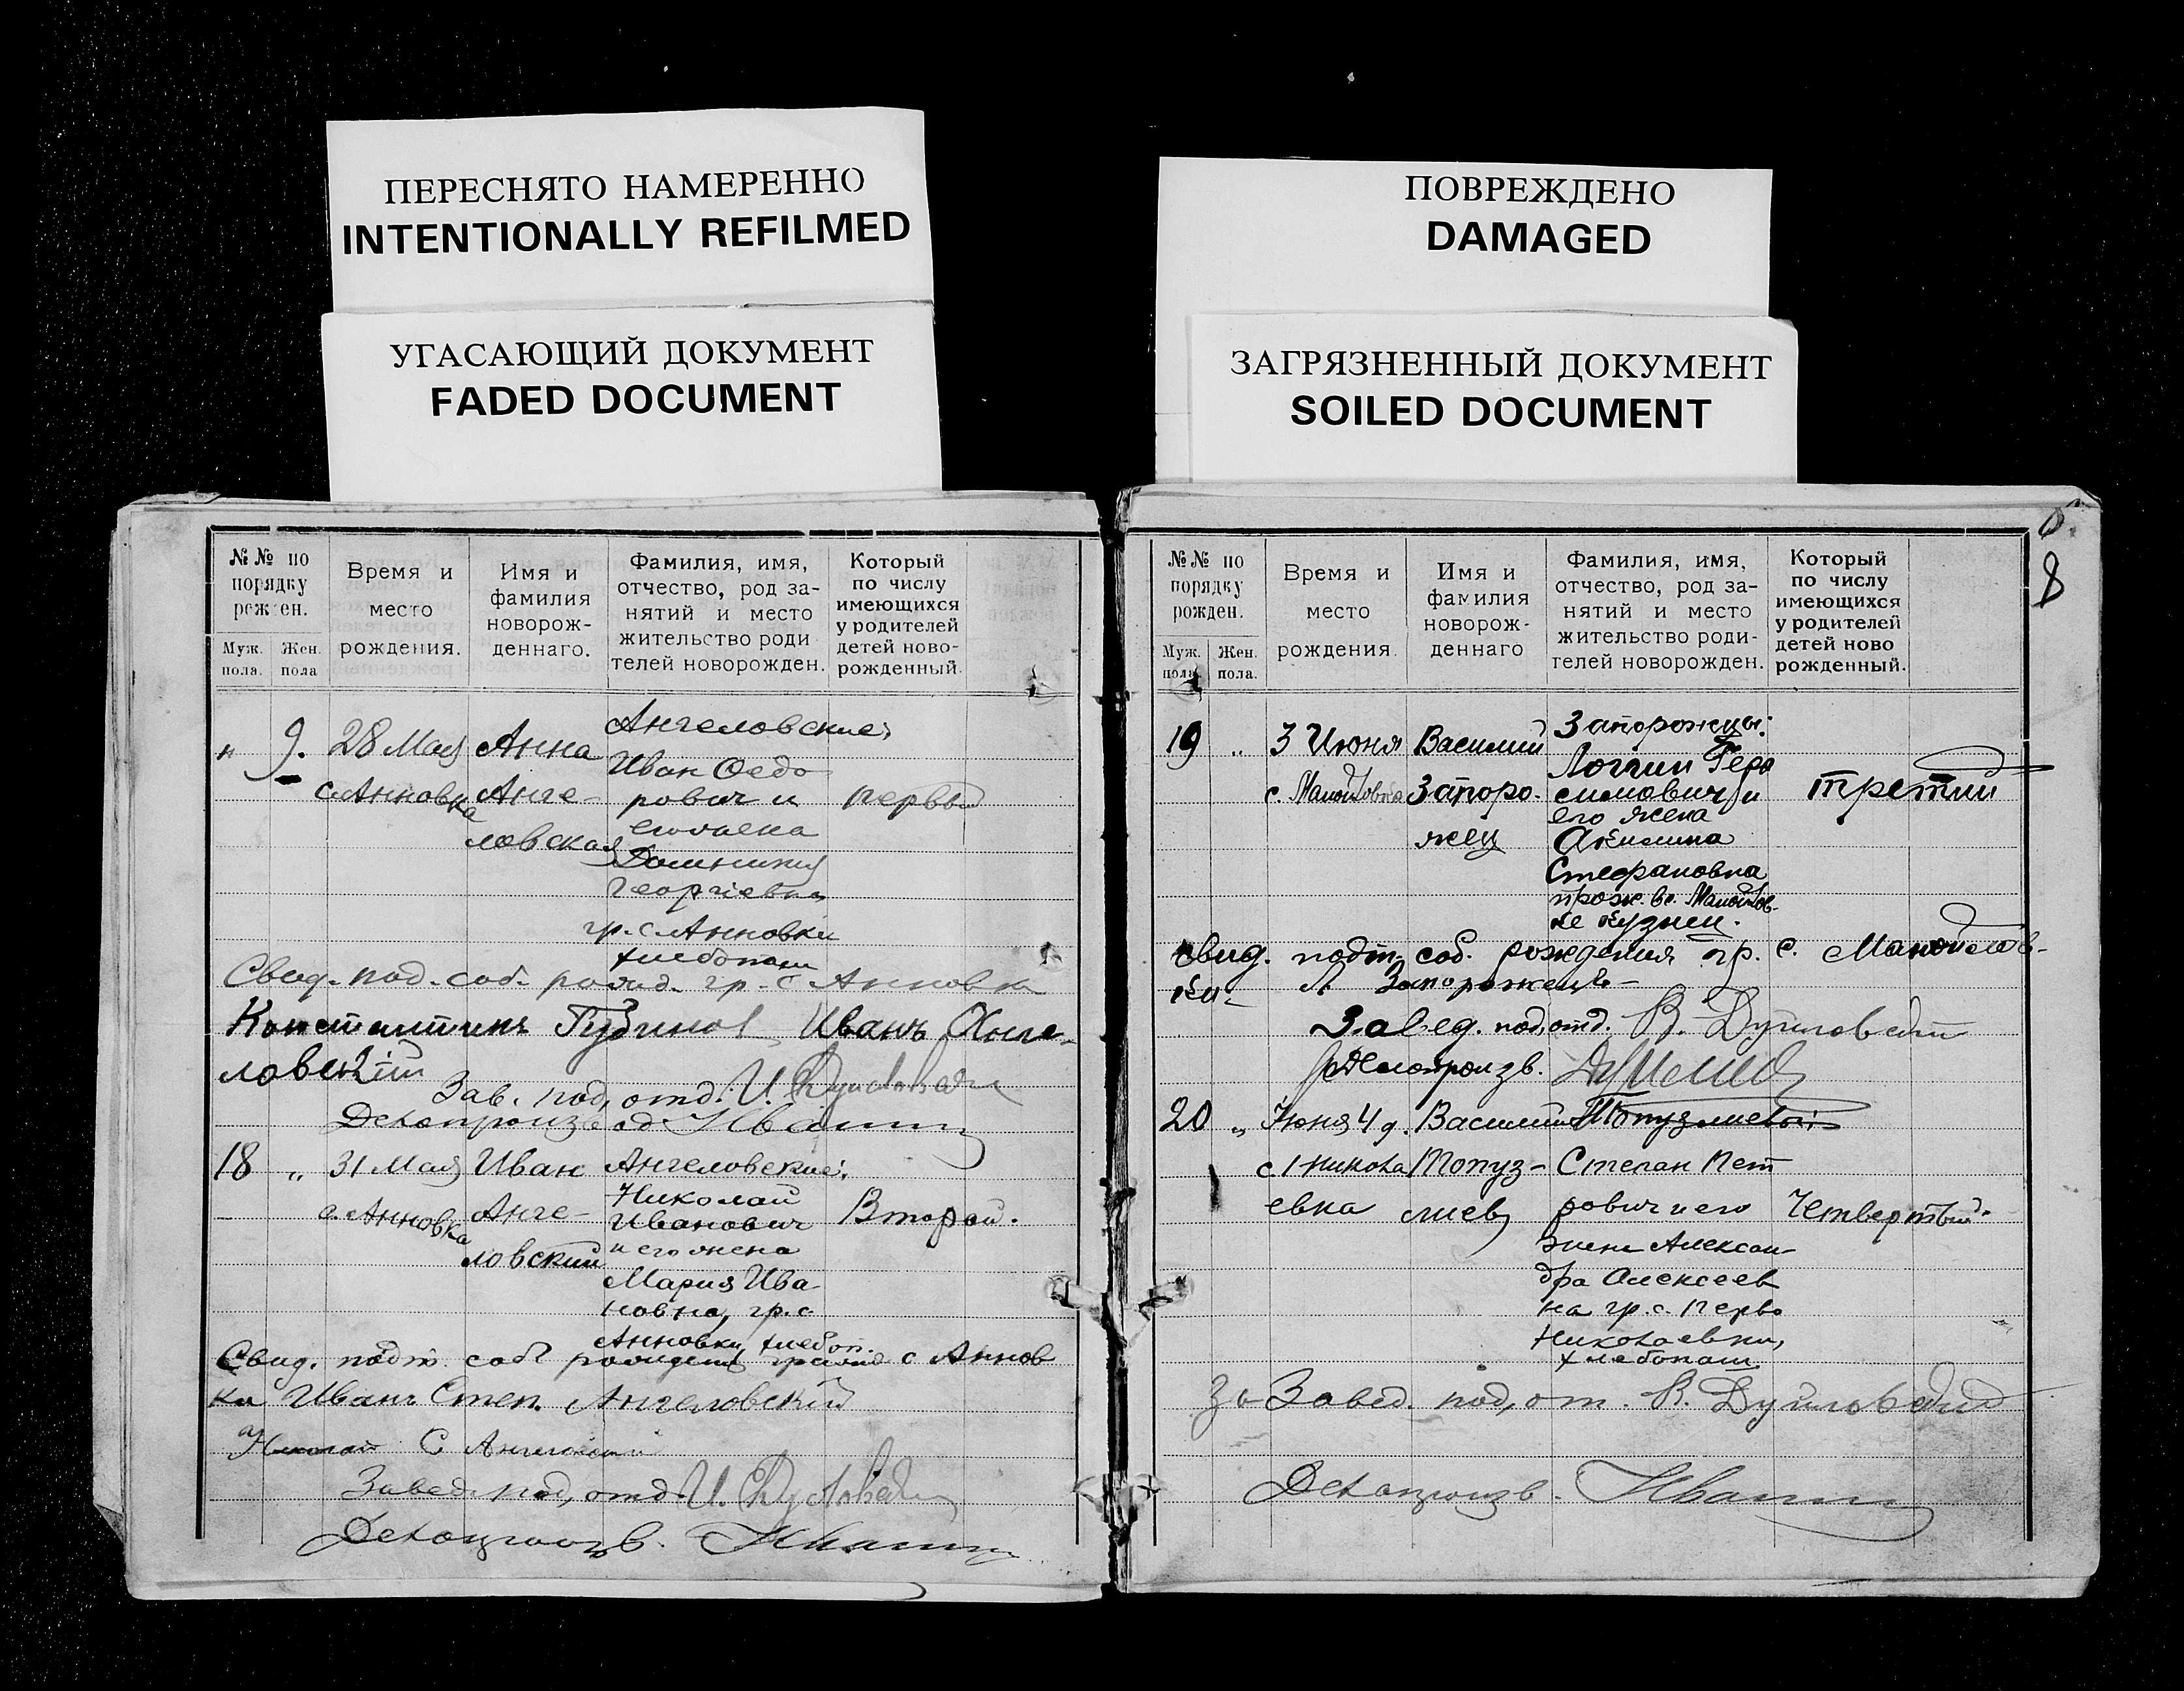 ПЕРЕСНЯТО НАМЕРЕННО
INTENTIONALLY REFILMED
УГАСАЮЩИЙ ДОКУМЕНТ
FADED DOCUMENT
ПОВРЕЖДЕНО
DAMAGED
ЗАГРЯЗНЕННЫЙ ДОКУМЕНТ
SOILED DOCUMENT
№№ по
порядку
рожден.
Муж.
пола.
Жен.
пола
Время и
место
рождения.
Имя и
фамилия
новорож-
деннаго.
Фамилия, имя,
отчество, род за-
нятий и место
жительство роди
телей новорожден.
Который
по числу
имеющихся
у родителей
детей ново-
рожденный.
„ 9. 28 Мая
с. Анновка
Анна
Анге-
ловская
Ангеловские,
Иван Федо
рович и
его жена
Домникия
Георгіевна
гр. с. Анновки
хлебопаш
первый
Свид. под. соб. рожд. гр. с Анновки
Константинъ Иванъ Анге-
ловскій
Зав. под, отд. И.
Делопроизвод
18 „ 31 Мая
с. Анновка
Иван
Анге-
ловский
Ангеловские:
Николай
Иванович
и его жена
Мария Ива
новна, гр. с
Анновки, хлебоп.
Второй.
Свид. подт. соб рождения с Аннов
ки Иванъ Степ. Ангеловскій
Завед. под, отд. И.
Делопроизв.
8
№№ по
порядку
рожден.
Муж.
пола.
Жен.
пола.
Время и
место
рождения.
Имя и
фамилия
новорож-
деннаго
Фамилия, имя,
отчество, род за-
нятий и место
жительство роди-
телей новорожден.
Который
по числу
имеющихся
у родителей
детей ново
рожденный.
19 „ 3 Июня
с. Манойловка
Василий
Запоро-
жец
Запорожцы:
Логгин Гера
симович и
его жена
Акилина
Стефановна
прож. в с. Манойлов-
ке кузнец.
третий
свид. подт. соб. рождения гр. с. Манойлов-
ки Л Запорожецъ
Завед. под, отд. В.
Делопроизв.
20 „ Июня 4 д.
с. 1 Никола
евка
Василий
Топуз-
лиев
Топузлиевы:
Степан Пет
рович и его
жена Алексан-
дра Алексеев
на гр. с. Перво
Николаевки,
хлебопаш.
Четвертый.
За Завед. под, от. В.
Делопроизв.